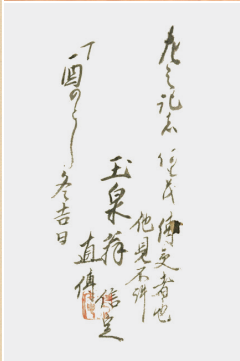 右之記者何某傳受者也
他見不許
玉泉齋信是
直傳
丁酉のとし冬吉日